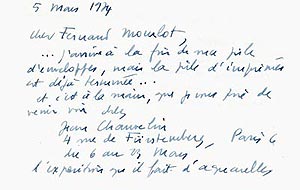 5 mars 1974
cher Fernand Mourlot,
... j'arrive à la fin de ma pile
d'enveloppes, mais la pile d'imprimés
est déjà terminée...
et c'est à la main, que je vous prie de
venir voir chez
Jean Chauvelin
4 rue de Fürstenberg, Paris 6
du 6 au 23 mars,
l'exposition que il fait d'aquarelles